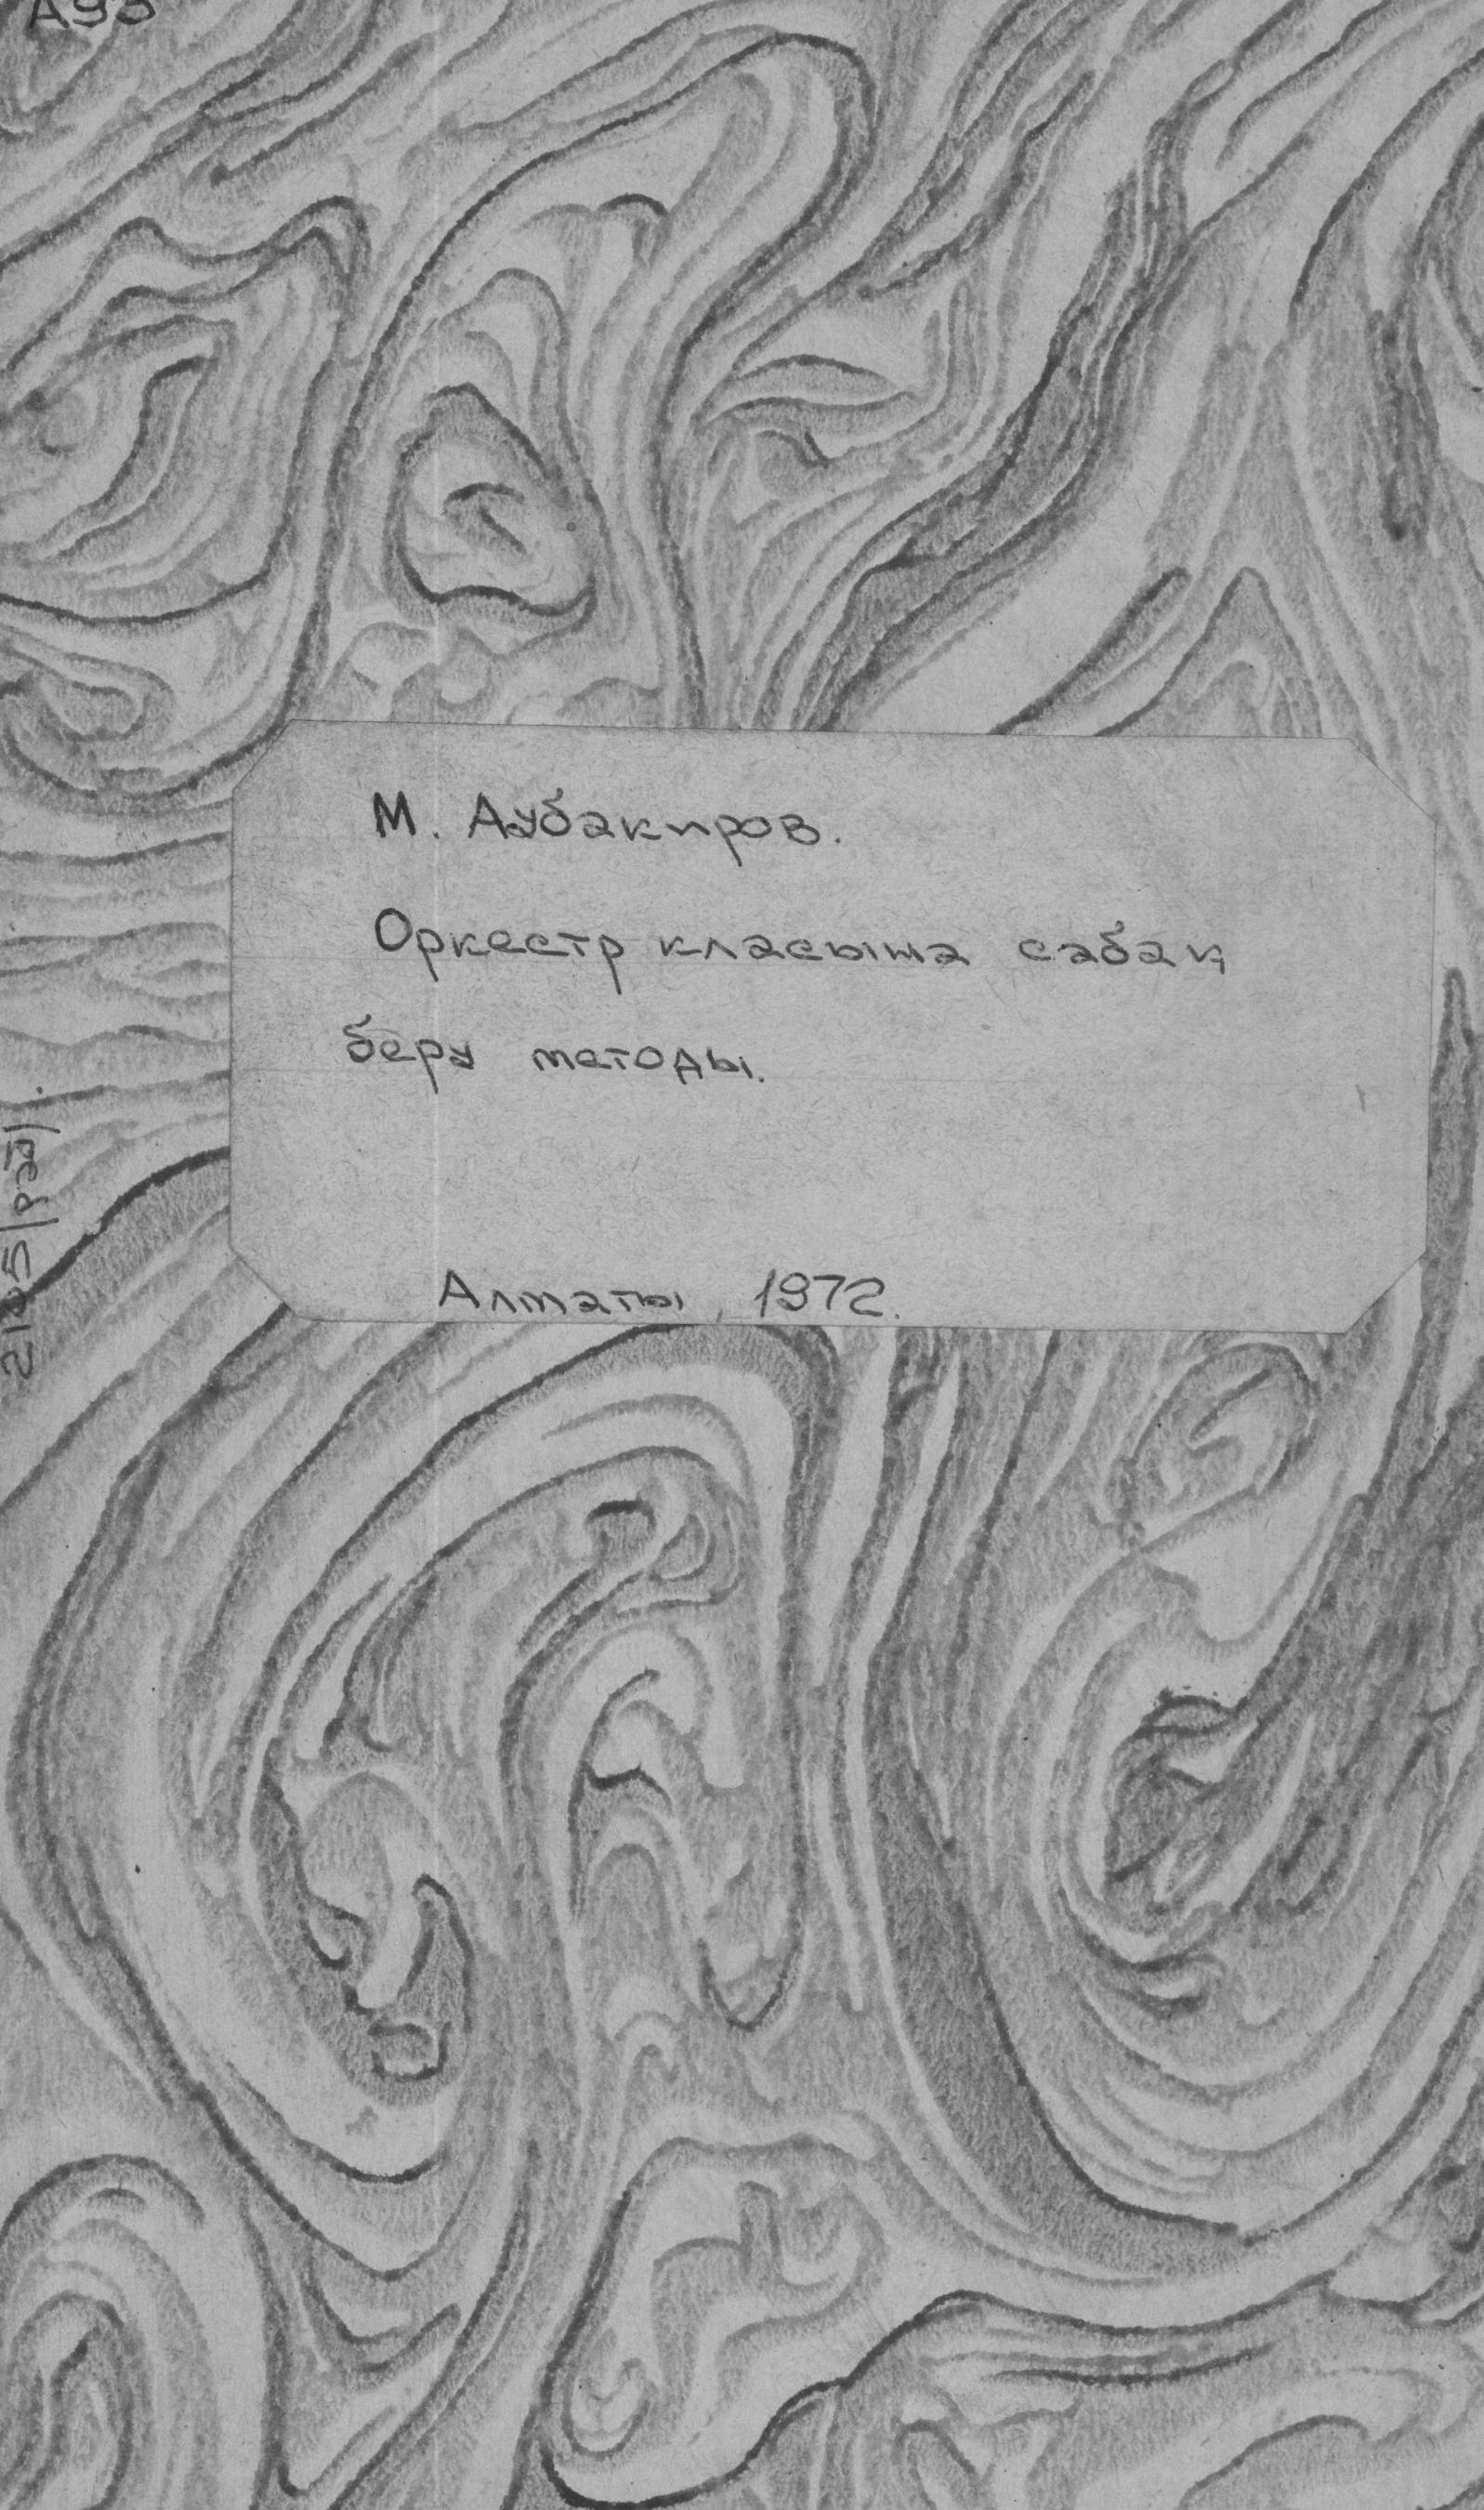 А93
М. Аубакиров.
Оркестр класына сабақ
беру методы.
Алматы, 1972.